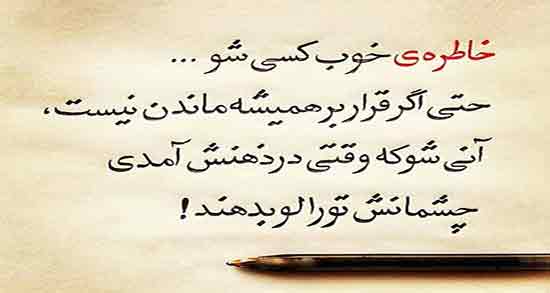 خاطره‌ی خوب کسی شو ...
حتی اگر قرار بر همیشه ماندن نیست،
آنی شو که وقتی در ذهنش آمدی
چشمانش تو را لو بدهند!